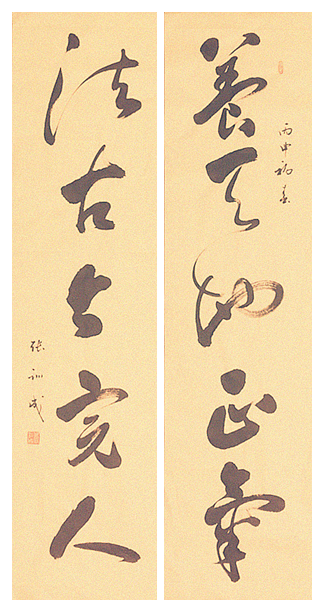 養天地正氣
丙申初春
法古今完人
張訓成